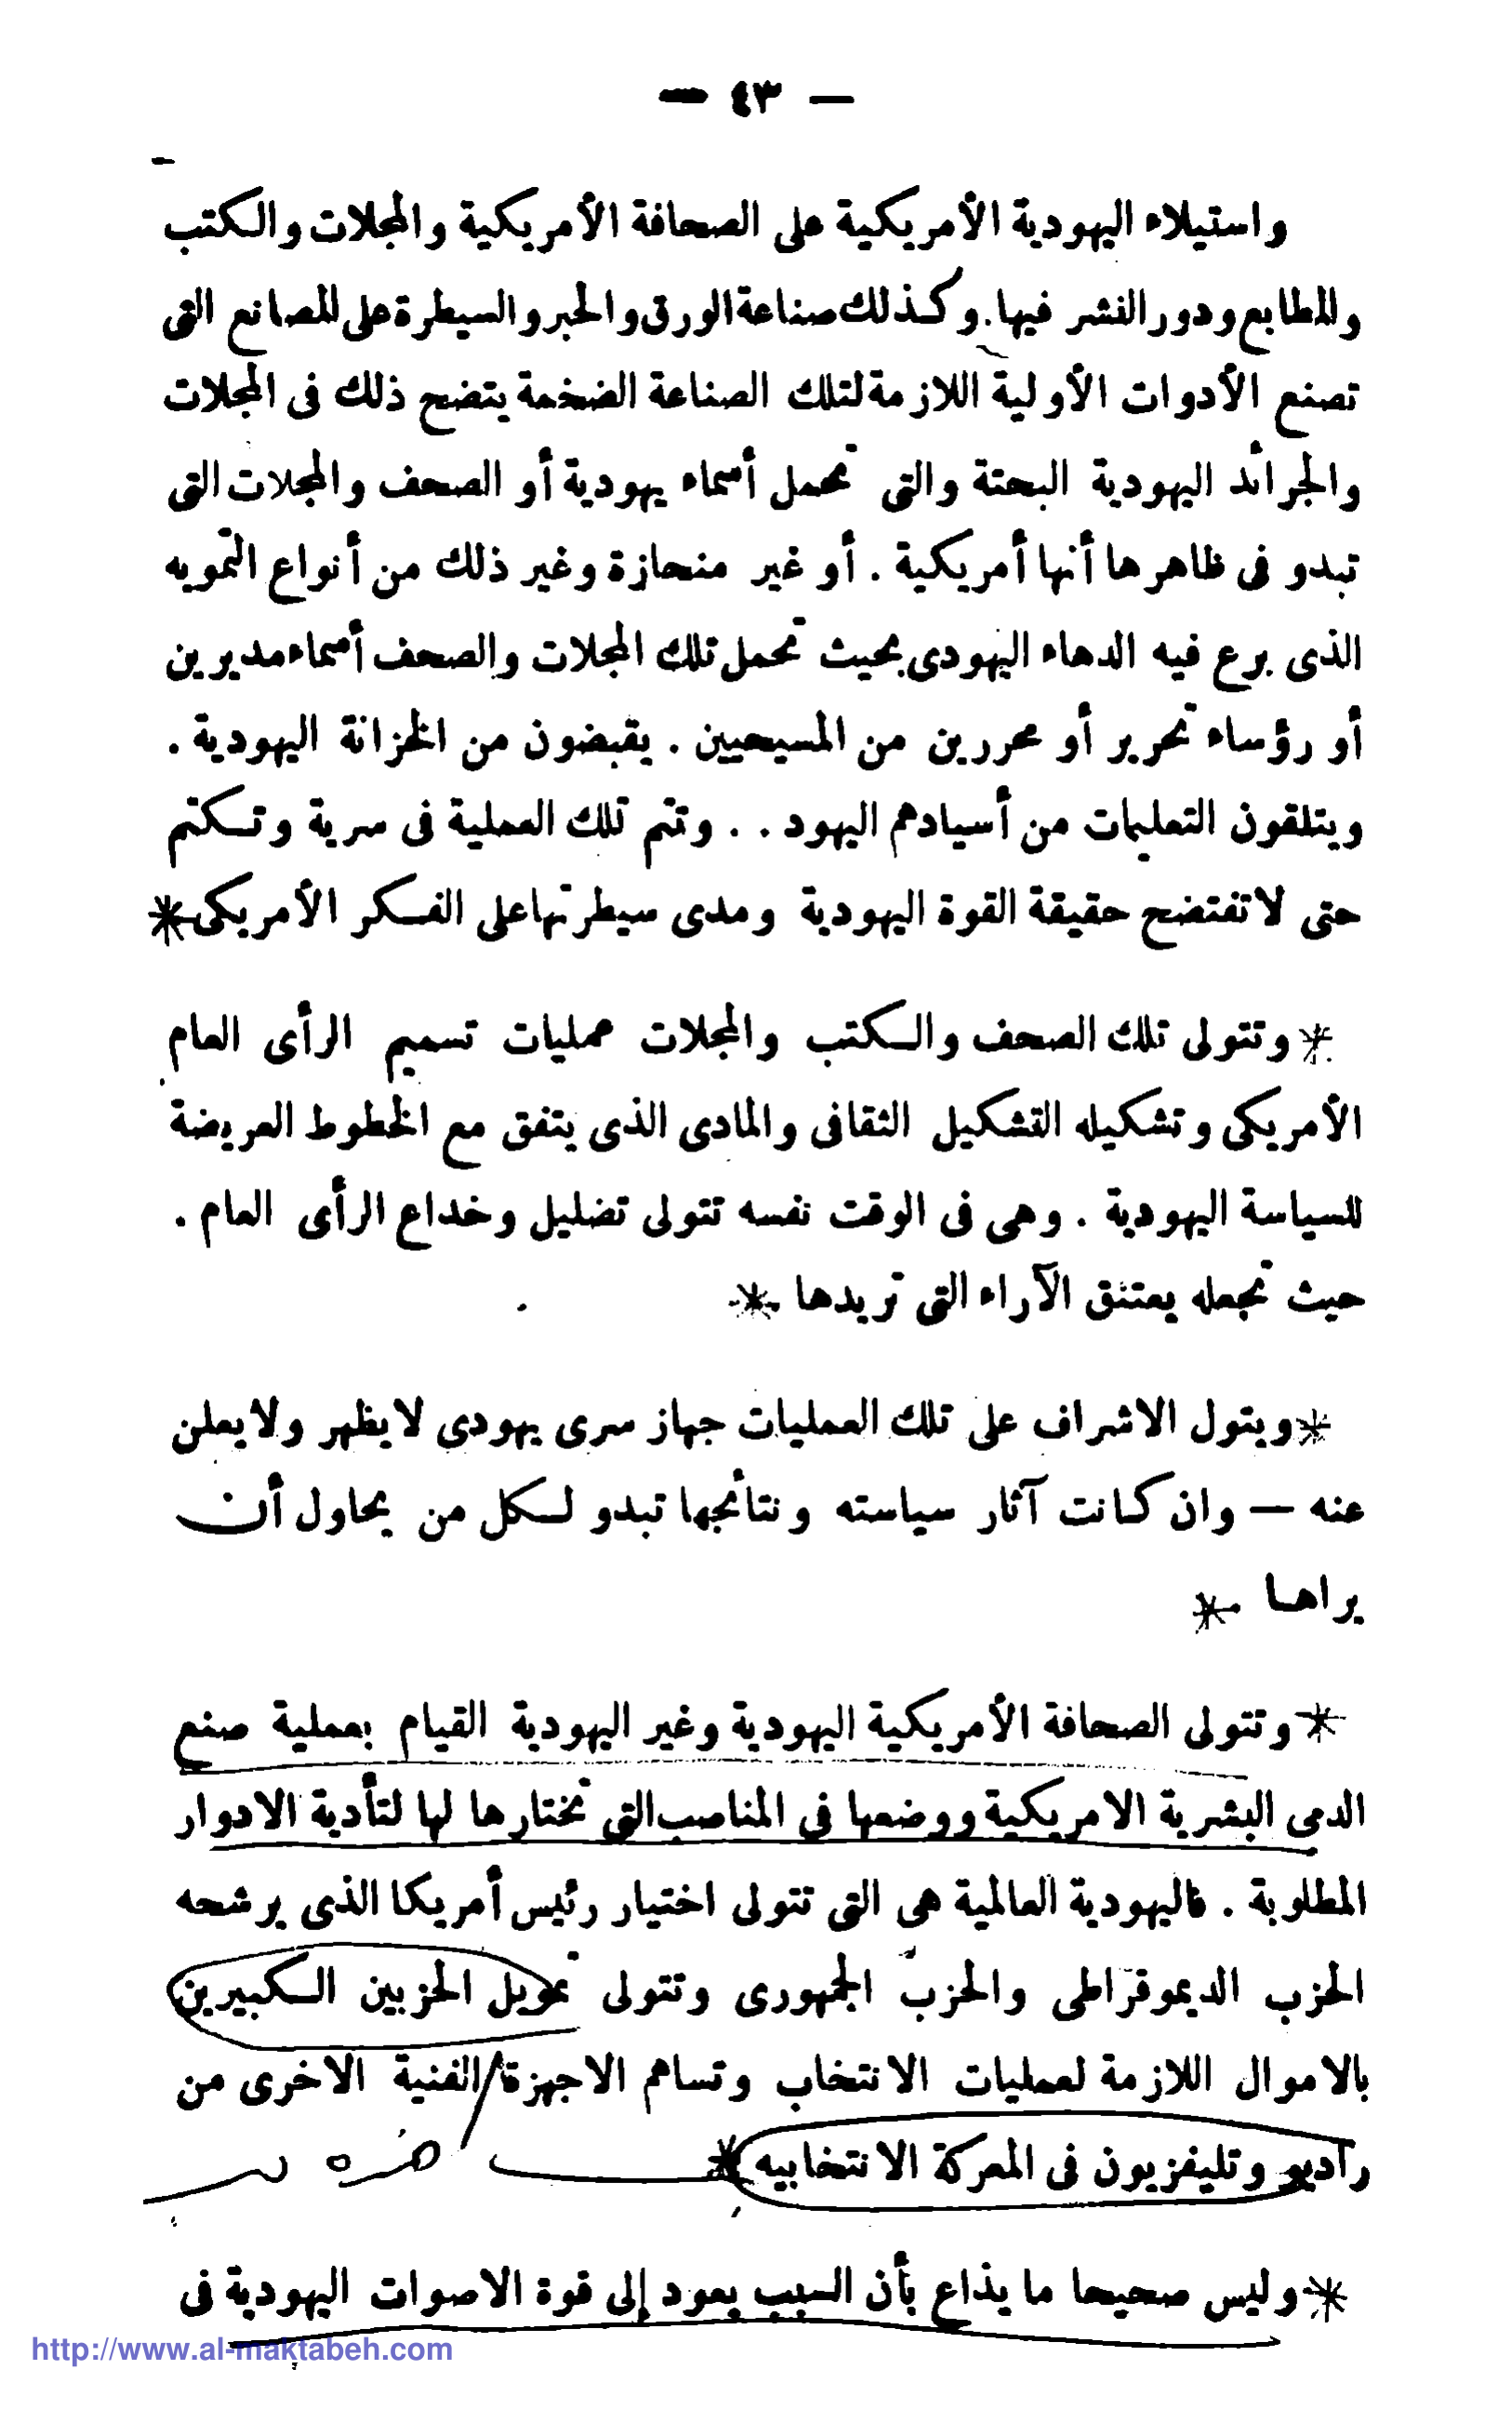 — ٤٣ —
واستيلاء اليهودية الأمريكية على الصحافة الأمريكية والمجلات والكتب
والمطابع ودور النشر فيها. وكذلك صناعة الورق والحبر والسيطرة على المصانع التى
تصنع الأدوات الأولية اللازمة لتلك الصناعة الضخمة يتضح ذلك فى المجلات
والجرائد اليهودية البحتة والتى تحمل أسماء يهودية أو الصحف والمجلات التى
تبدو فى ظاهرها أنها أمريكية . أو غير منحازة وغير ذلك من أنواع التمويه
الذى برع فيه الدهاء اليهودى بحيث تحمل تلك المجلات والصحف أسماء مديرين
أو رؤساء تحرير أو محررين من المسيحيين . يقبضون من الخزانة اليهودية .
ويتلقون التعليمات من أسيادهم اليهود . . وتتم تلك العملية فى سرية وتكتم
حتى لا تفتضح حقيقة القوة اليهودية ومدى سيطرتها على الفكر الأمريكى *
* وتتولى تلك الصحف والكتب والمجلات عمليات تسميم الرأى العام
الأمريكى وتشكيله التشكيل الثقافى والمادى الذى يتفق مع الخطوط العريضة
للسياسة اليهودية . وهى فى الوقت نفسه تتولى تضليل وخداع الرأى العام .
حيث تجعله يعتنق الآراء التى تريدها *
* ويتول الاشراف على تلك العمليات جهاز سرى يهودى لا يظهر ولا يعلن
عنه — وان كانت آثار سياسته ونتائجها تبدو لكل من يحاول أن
يراها *
* وتتولى الصحافة الأمريكية اليهودية وغير اليهودية القيام بعملية صنع
الدمى البشرية الامريكية ووضعها فى المناصب التى تختارها لها لتأدية الادوار
المطلوبة . فاليهودية العالمية هى التى تتولى اختيار رئيس أمريكا الذى يرشحه
الحزب الديموقراطى والحزب الجمهورى وتتولى تمويل الحزبين الكبيرين
بالاموال اللازمة لعمليات الانتخاب وتساهم الاجهزة الفنية الاخرى من
راديو وتليفزيون فى المعركة الانتخابيه *
* وليس صحيحا ما يذاع بأن السبب يعود إلى قوة الاصوات اليهودية فى
http://www.al-maktabeh.com